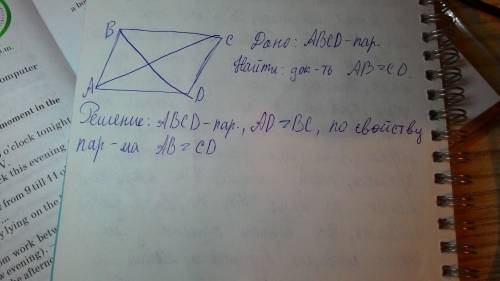 B
C
A
D
Дано: ABCD-пар.
Найти: док-ть AB=CD.
Решение: ABCD-пар., AD=BC, по свойству
пар-ма AB=CD
computer
moment in the
o'clock tonight
ck this evening
from 9 till 11 o'
y lying on the
om work betw
ow evening),
the afternoo